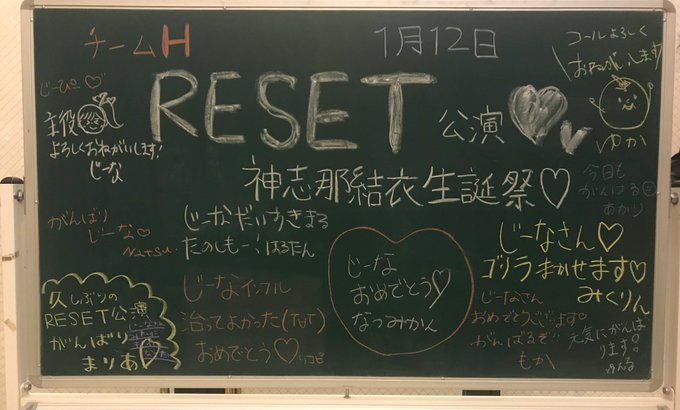 チームH
1月12日
RESET
公演
神志那結衣生誕祭♡
コールよろしく
おねがいします
ゆか
じーぴー♡
主役
よろしくおねがいします!
じーな
今日も
がんばる
あかり
がんばり
じーな♡
Natsu.
じーなだいすきまる
たのしもー! はるたん
じーな
おめでとう♡
なつみかん
じーなさん♡
ゴリラまかせます♡
みくりん
久しぶりの
RESET公演
がんばり
まりあ
じーなインフル
治ってよかった(TvT)
おめでとう♡
じーなさん
おめでとうございます!
がんばるぞ
もか
元気にがんば
ります!